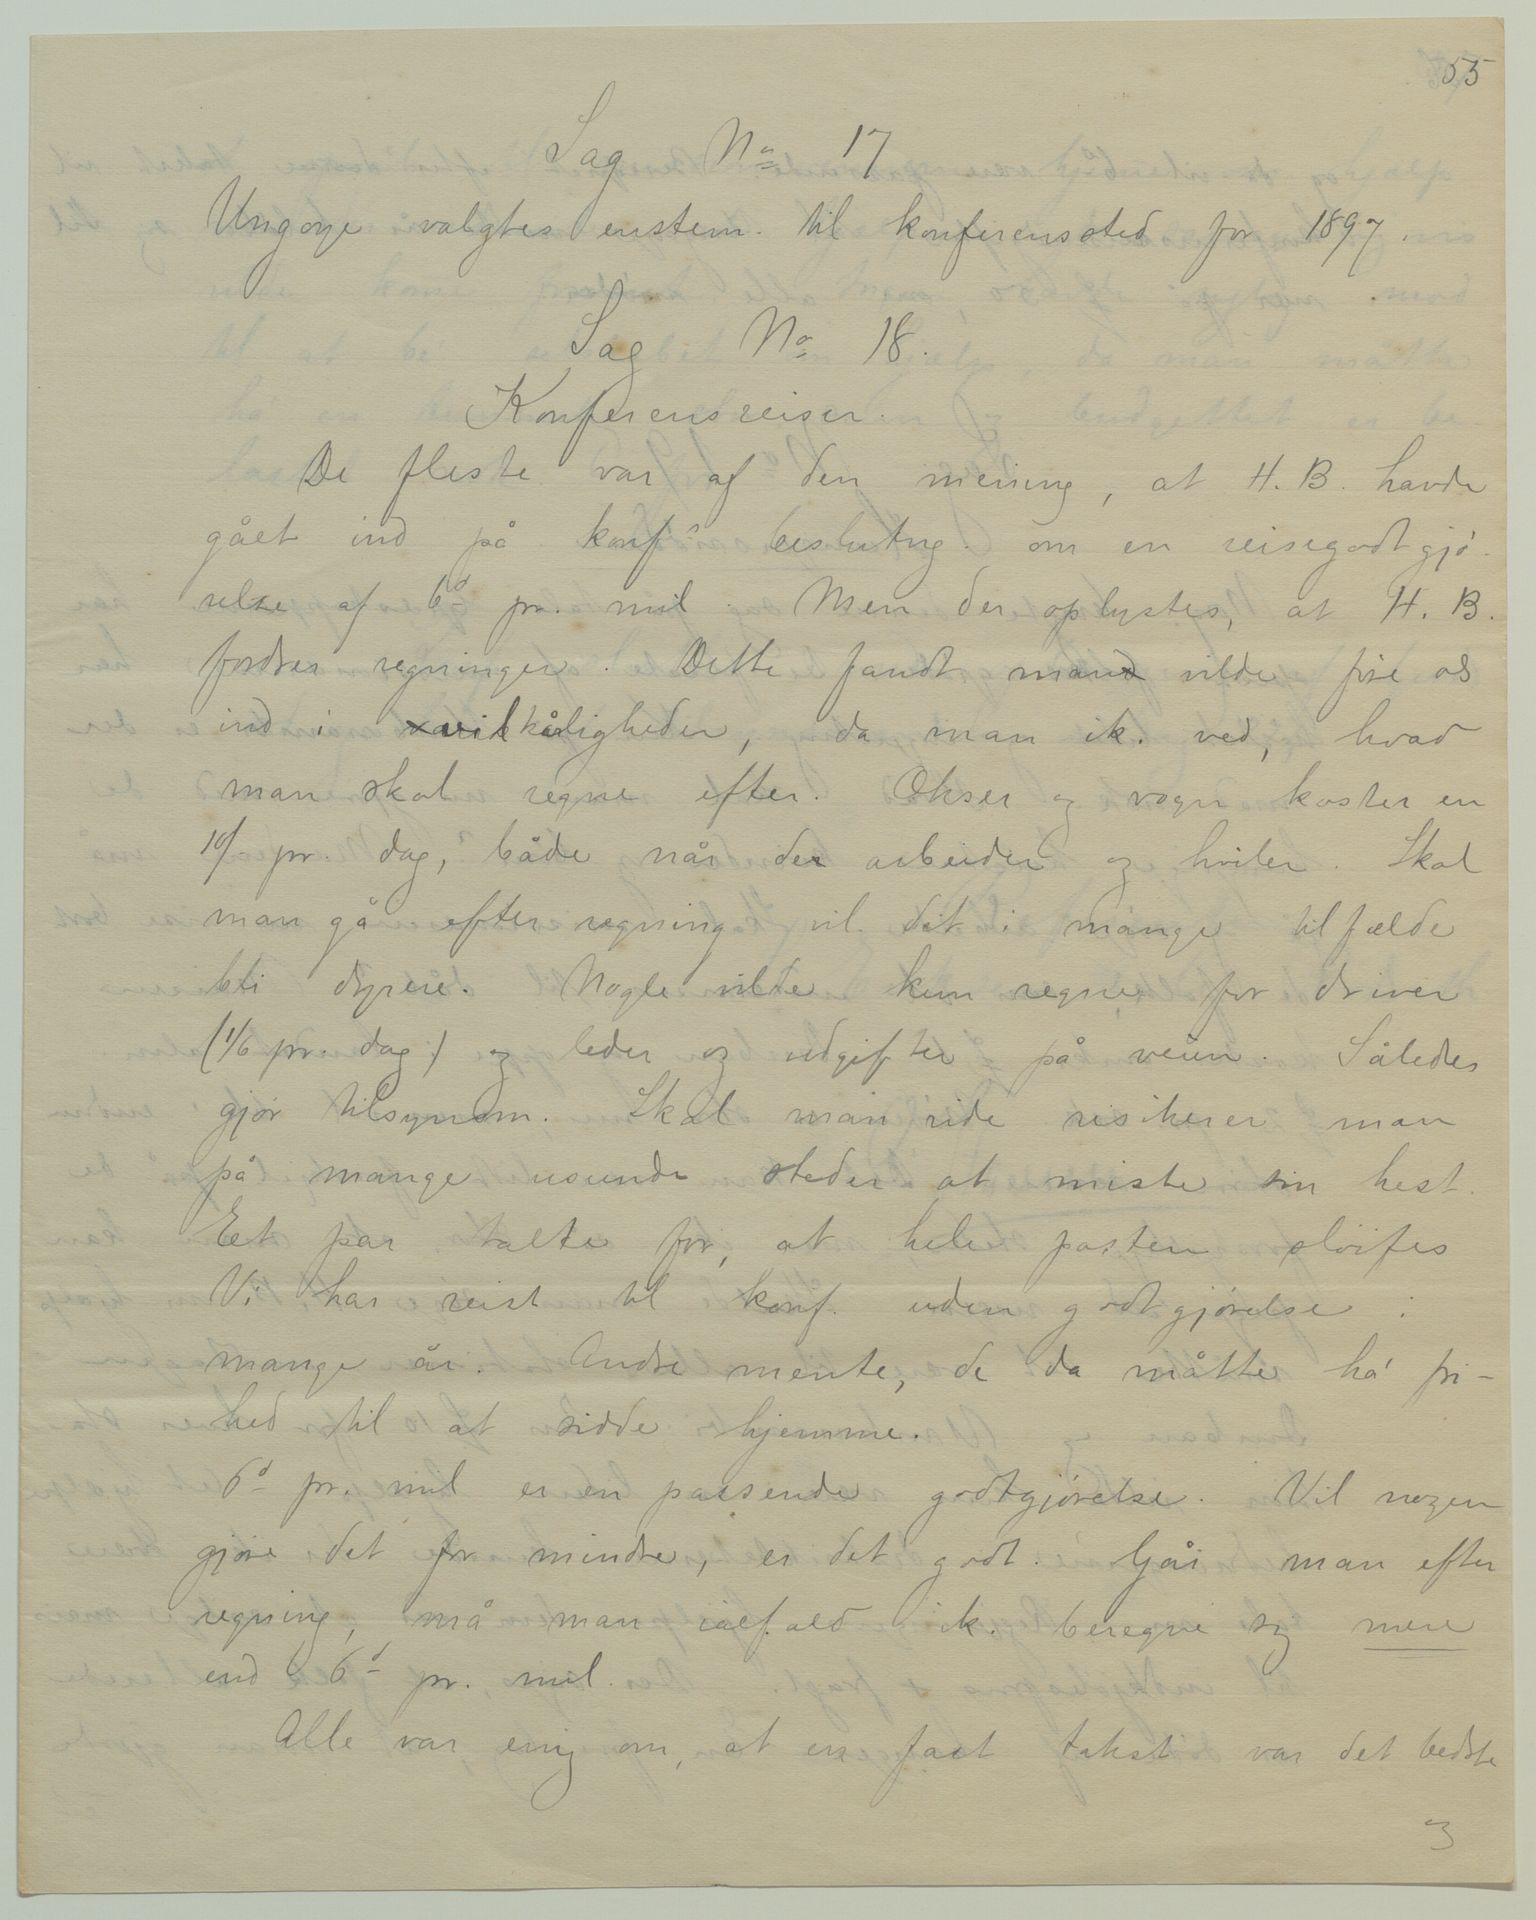 55
Sag No 17
Ungoye valgtes enstem. til konferenssted for 1897.
Sag No 18.
Konferensreiser.
De fleste var af den mening, at H.B. havde
gået ind på konf's beslutng. om en reisegodtgjö-
relse af 6d pr. mil. Men der oplystes, at H.B.
fordrer regninger. Dette fandt man vilde före os
ind i vilkårligheder, da man ik. ved, hvad
man skal regne efter. Okser og vogn koster en
10/- pr. dag, både når de arbeider og hviler. Skal
man gå efter regning vil det i mange tilfælde
bli dyrere. Nogle vilde kun regne for driver
(1/6 pr. dag) og leder og udgifter på veien. Således
gjör tilsynsm. Skal man ride risikerer man
på mange usunde steder at miste sin hest.
Et par talte for, at hele posten slöifes
Vi har reist til konf. uden godtgjörelse i
mange år. Andre mente, de da måtte ha' fri-
hed til at sidde hjemme.
6d pr. mil er en passende godtgjörelse. Vil nogen
gjöre det for mindre, er det godt. Går man efter
regning, må man ialfald ik. beregne sig mere
end 6d pr. mil.
Alle var enig om, at en fast takst var det bedste
3